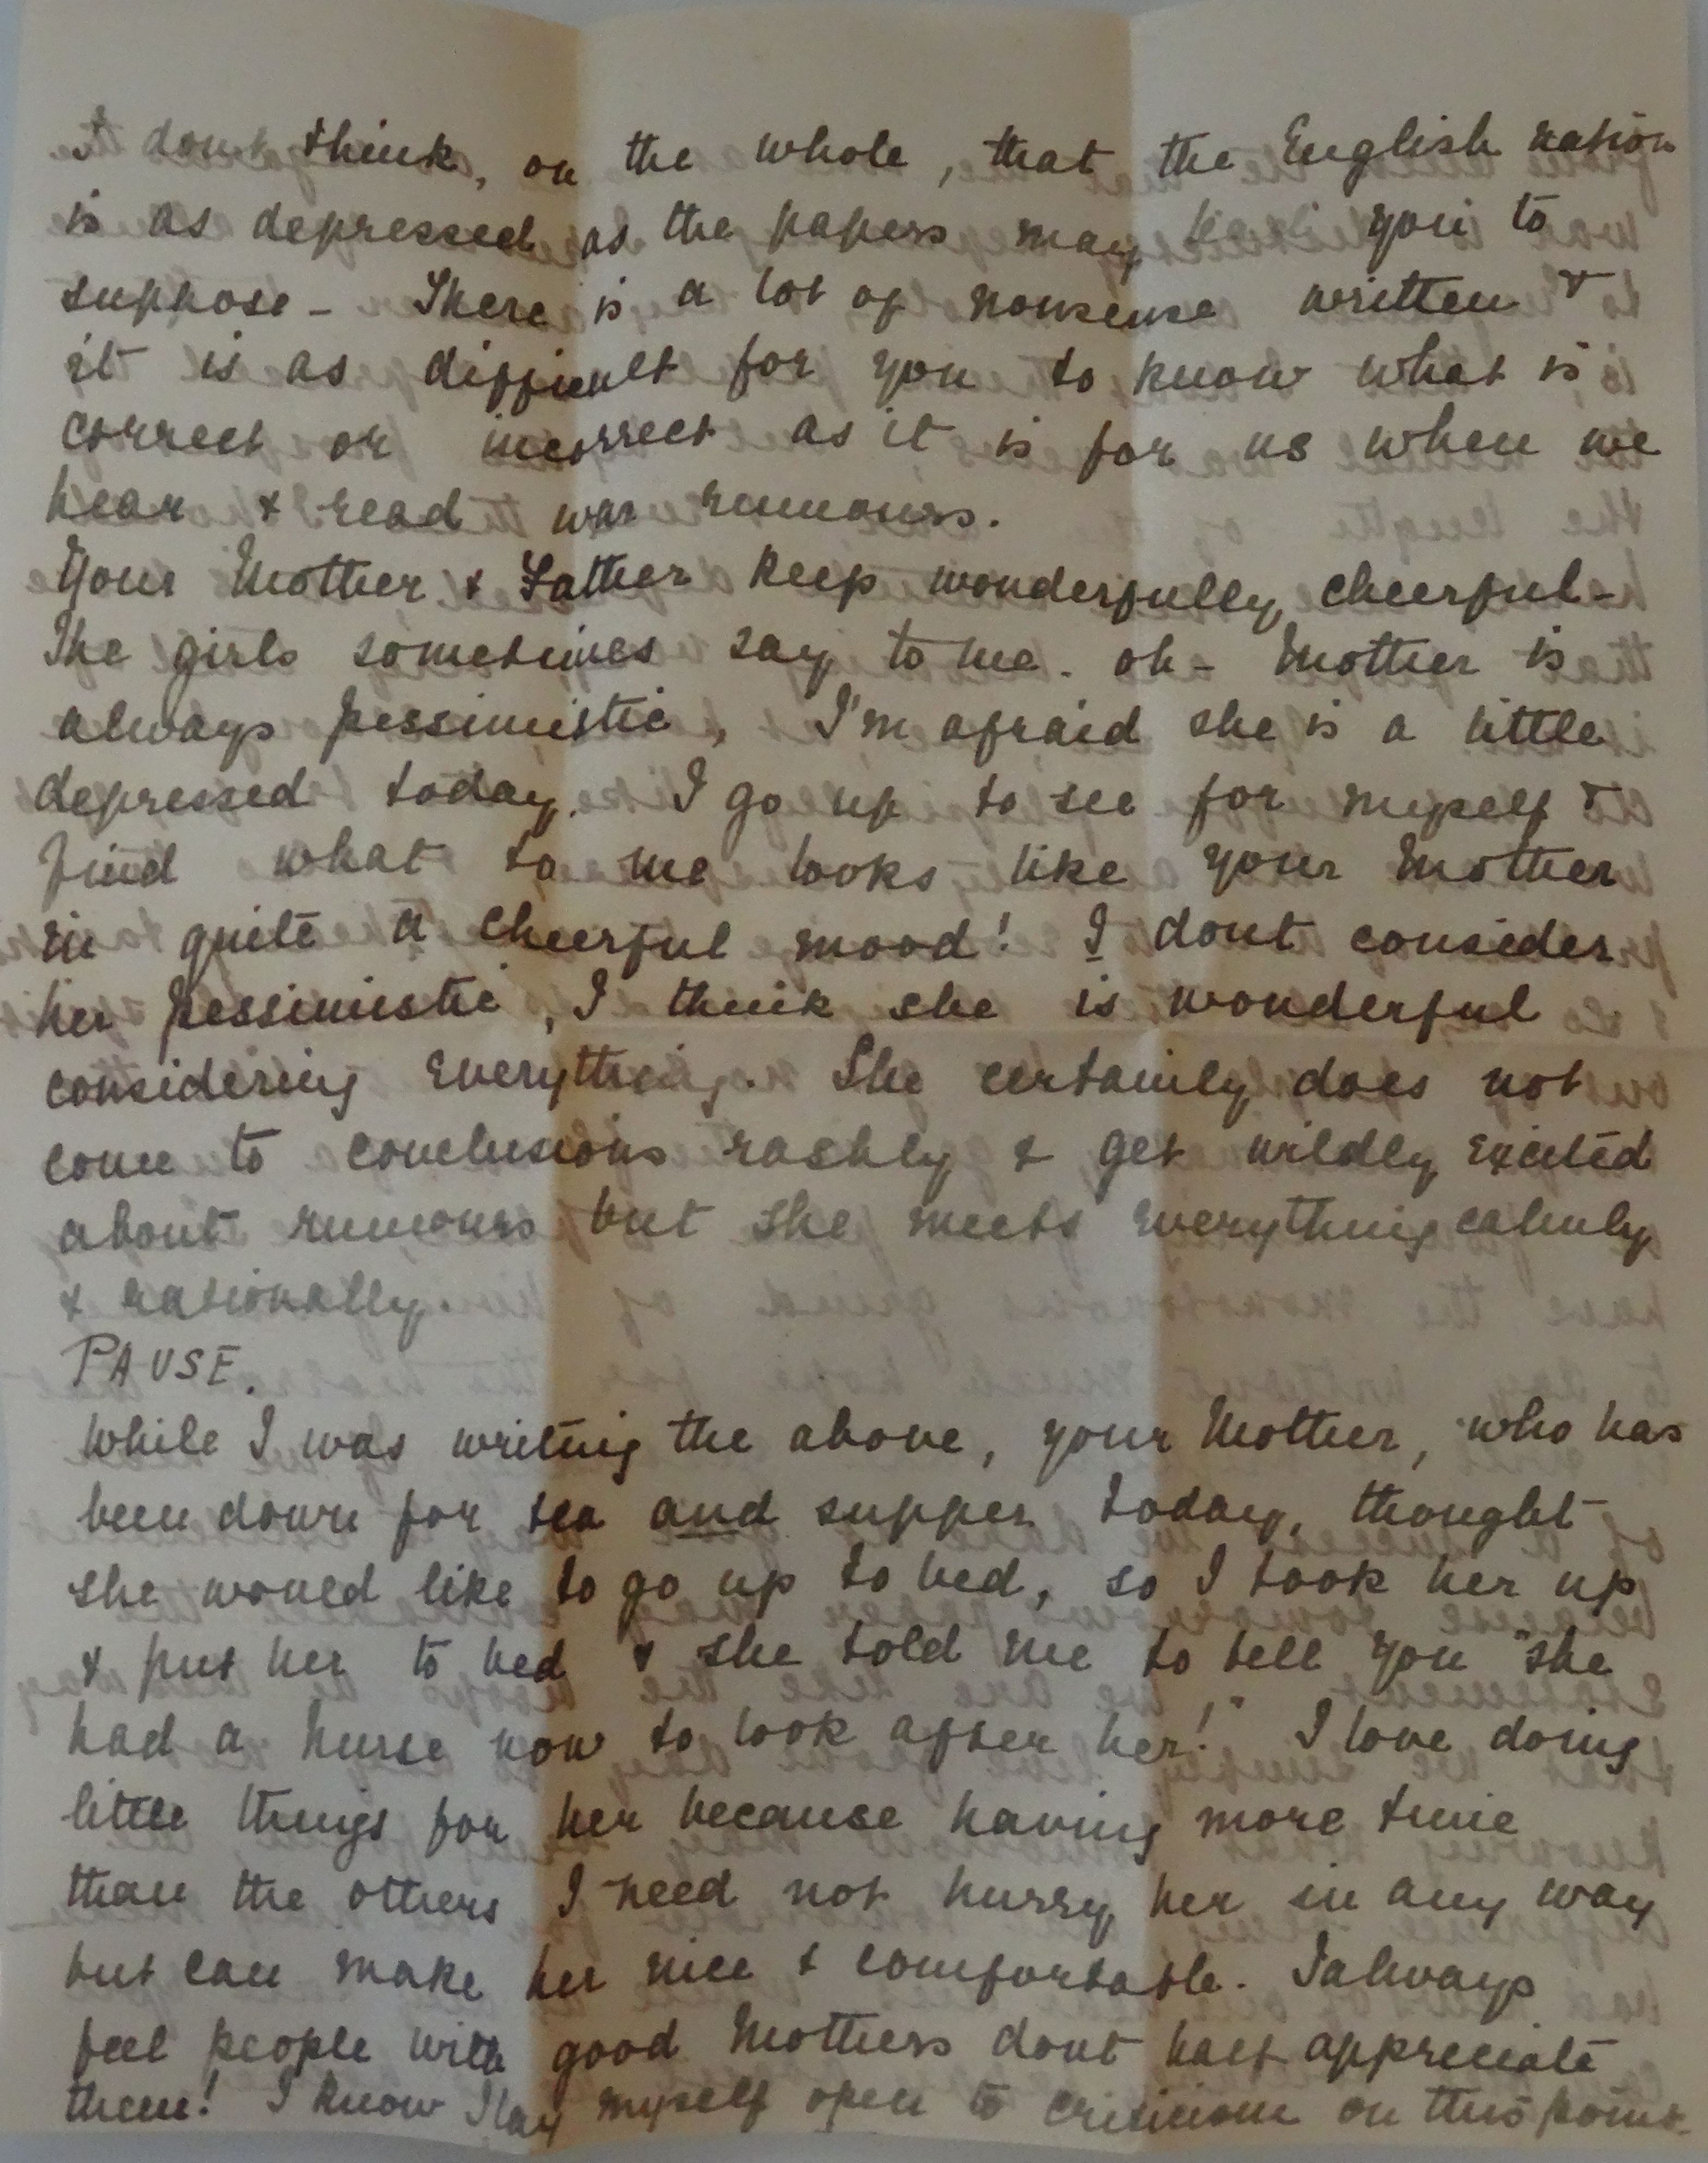 I dont think, on the whole, that the English nation
is as depressed as the papers may lead you to
suppose - There is a lot of nonsense written &
it is as difficult for you to know what is
correct or incorrect as it is for us when we
hear & read war rumours.
Your Mother & Father keep wonderfully cheerful -
The girls sometimes say to me - oh - Mother is
always pessimistic, I'm afraid she is a little
depressed today. I go up to see for myself &
find what to me looks like your Mother
in quite a cheerful mood! I dont consider
her pessimistic, I think she is wonderful
considering everything. She certainly does not
come to conclusions rashly & get wildly excited
about rumours but she meets everything calmly
& rationally.
PAUSE.
While I was writing the above, your Mother, who has
been down for tea and supper today, thought
she would like to go up to bed, so I took her up
& put her to bed & she told me to tell you "she
had a nurse now to look after her!" I love doing
little things for her because having more time
than the others I need not hurry her in any way
but can make her nice & comfortable. I always
feel people with good Mothers dont half appreciate
them! I know I lay myself open to criticism on this point.